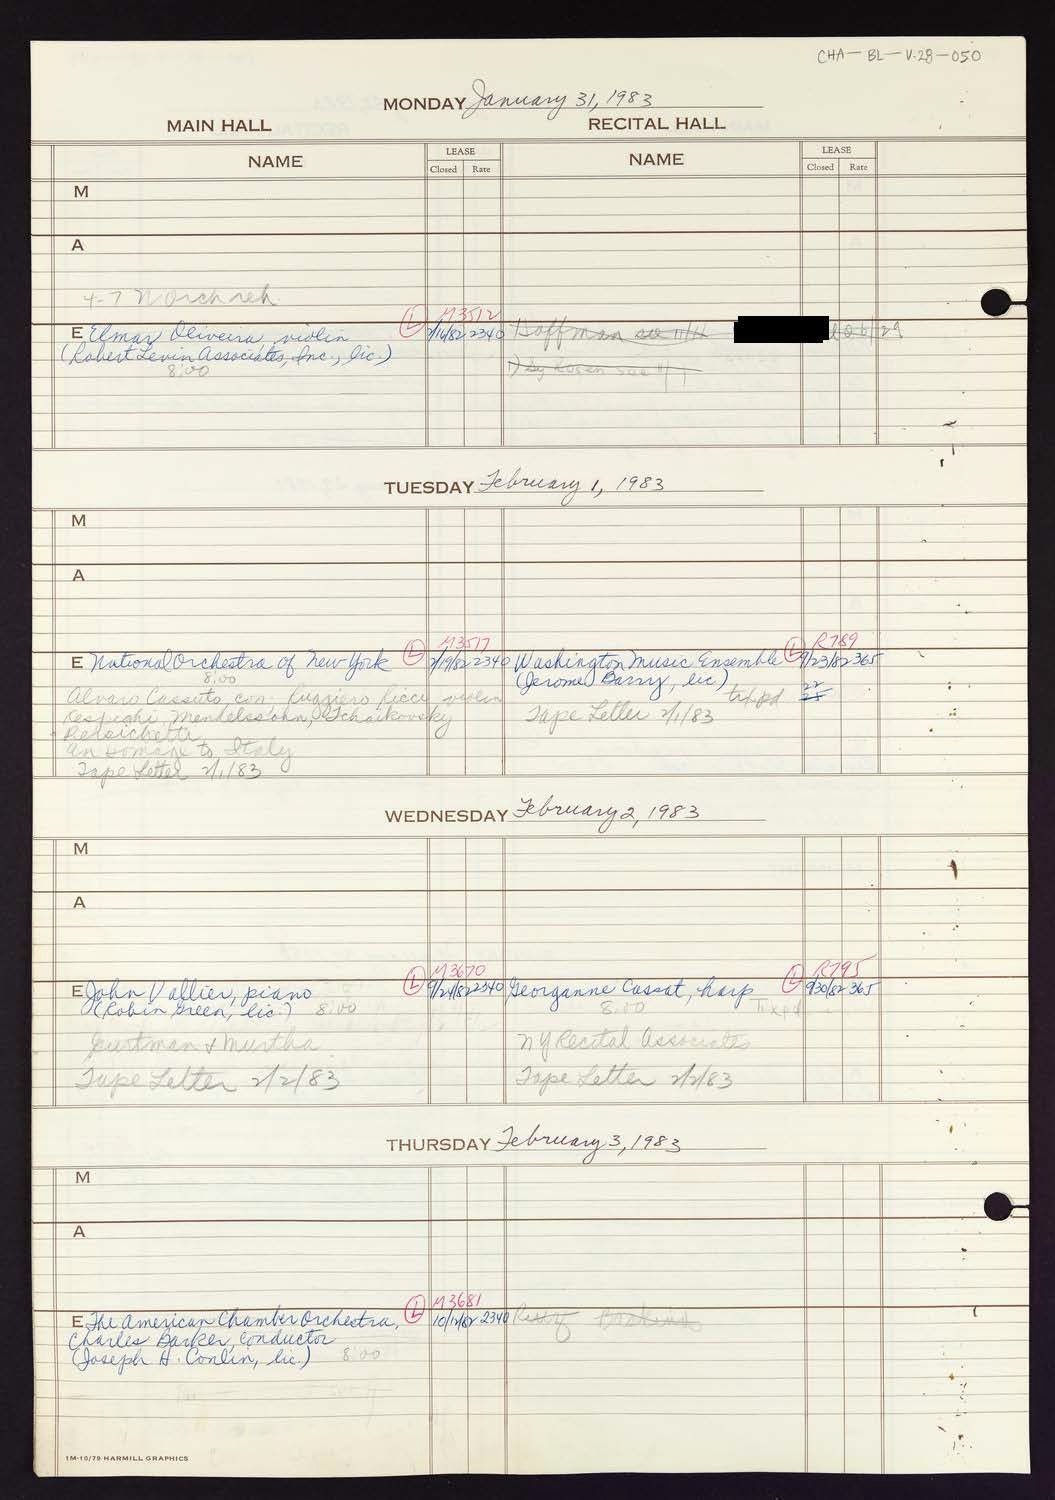 CHA-BL-V.28-050
MONDAY January 31, 1983
MAIN HALL RECITAL HALL
NAME LEASE NAME LEASE
Closed Rate Closed Rate
M
A
4-7 orch reh
M3512
E Elmar Oliveira, violin L 2/16/82 2340 Hoffman see 11/11
(Robert Levin Associates, Inc., lic.)
8:00 by Rosen see 11/
TUESDAY February 1, 1983
M
A
M3517 R789
E National Orchestra of New York L 2/19/82 2340 Washington Music Ensemble L 9/23/82 365
8:00 (Jerome Barry, lic)
Alvaro Cassuto, con, Ruggiero Ricci violin tix pd 22
Respighi, Mendelssohn, Tchaikovsky Tape Letter 2/1/83
Persichetti
An Homage to Italy
Tape Letter 2/1/83
WEDNESDAY February 2, 1983
M
A
M3670 R795
E John Vallier, piano L 9/21/82 2340 Georganne Cassat, harp L 9/30/82 365
(Robin Green, lic.) 8:00 8:00 Tix pd
Gurtman & Murtha NY Recital Associates
Tape Letter 2/2/83 Tape Letter 2/2/83
THURSDAY February 3, 1983
M
A
M3681
E The American Chamber Orchestra, L 10/12/82 2340
Charles Barker, conductor
(Joseph H. Conlin, lic.) 8:00
1M-10/79 HARMILL GRAPHICS